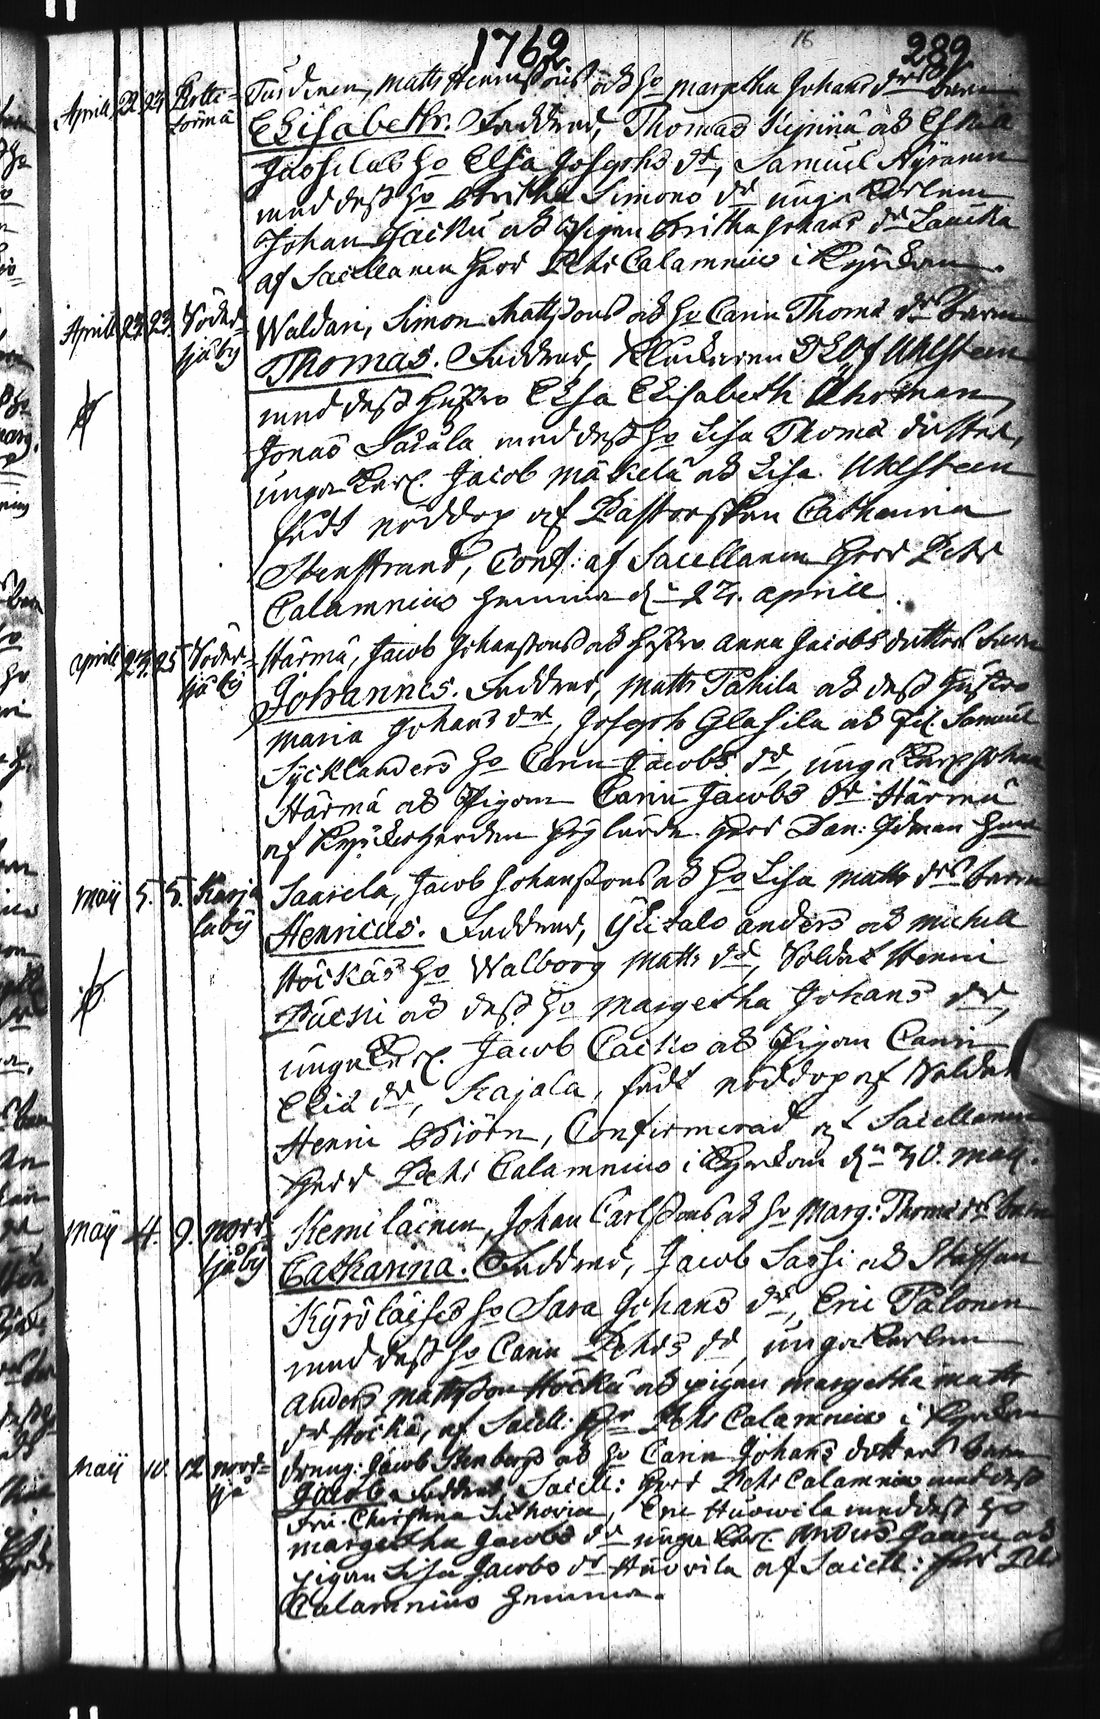 1762 16 289
Aprill 22 24 Turdinen, Matts Hennrikssons ock ho Margetha Johans drs barn
Elisabeth. Faddrar, Thomas ock Eskia
Jossilas ho Elsa Josephs dr, Samuel Äyränen
med dess ho Britha Simons dr unga Karlen
Johan Jacku ock Pigan Britha Johans dr Laucka
af Sacellanen Herr Petr Calamnius i Kyrkan.
Aprill 23. 23. Söder-
sjö by Waldari, Simon Mattssons ock ho Carin Thoms dr barn
Thomas. Faddrar, Klockaren Olof Uhlsteen
med dess hustro Elsa Elisabeth Åhrman,
Jonas med dess ho Lisa Thoms dotter,
unga Karl. Jacob Mäkelä ock Lisa Uhlsteen
fådt nöddop af Pastorskan Catharina
Stenstrand, Conf: af Sacellanen Herr Petr
Calamnius hemma d. 27. aprill.
Aprill 23. 25 Söder-
sjö by Härmä, Jacob Johanssons ock hustro Anna Jacobs dotters barn
Johannes. Faddrar, Matts Pahila ock dess hustro
Maria Johans dr, Joseph Glasila ock Samuel
Sycklanders ho Carin Jacobs dr, unga Karl Johan
Härmä ock Pigan Carin Jacobs dr Härmä
af Kyrckoherden Herr Dan: Hem
Maij 5. 5. Karja
laby Saarela, Jacob Johanssons ock ho Lisa Matts drs barn
Henricus. Faddrar, Ylitalo Anders ock Michell
Höckäs ho Walborg Matts dr, Soldat Henric
ock dess ho Margetha Johans dr,
unga Karl. Jacob Cacko ock Pigan Carin
Eliæ dr, Kajala, fådt nöddop af Soldat
Henric Biörn, Confirmerad af Sacellanen
Herr Petr Calamnius i Kyrkan d. 30. Maij.
Maij 4. 9. norr-
sjöby Kemiläinen, Johan Carlssons ock ho Marg: Thoms drs barn
Catharina. Faddrar, Jacob Sassi ock Staffan
Kyröläises ho Sara Johans dr, Eric Palonen
med dess ho Carin Pehrs dr, unga Karlen
Anders Mattsson Höckä ock pigan Margetha Matts
dr Höckä, af Sacell: Hr Petr Calamnius i Kyrckan
Maij 10. 12 norr-
sjö dreng: Jacob Stenbergs ock ho Carin Johans dotters barn
Jacob. Faddrar, Sacell: Herr Petr Calamnius med dess
Fru Christina, Eric Huowila med dess ho
Margetha Jacobs dr unga Karl. Anders ock
pigan Lisa Jacobs dr Huovila af Sacell: Herr Petr
Calamnius hemma.